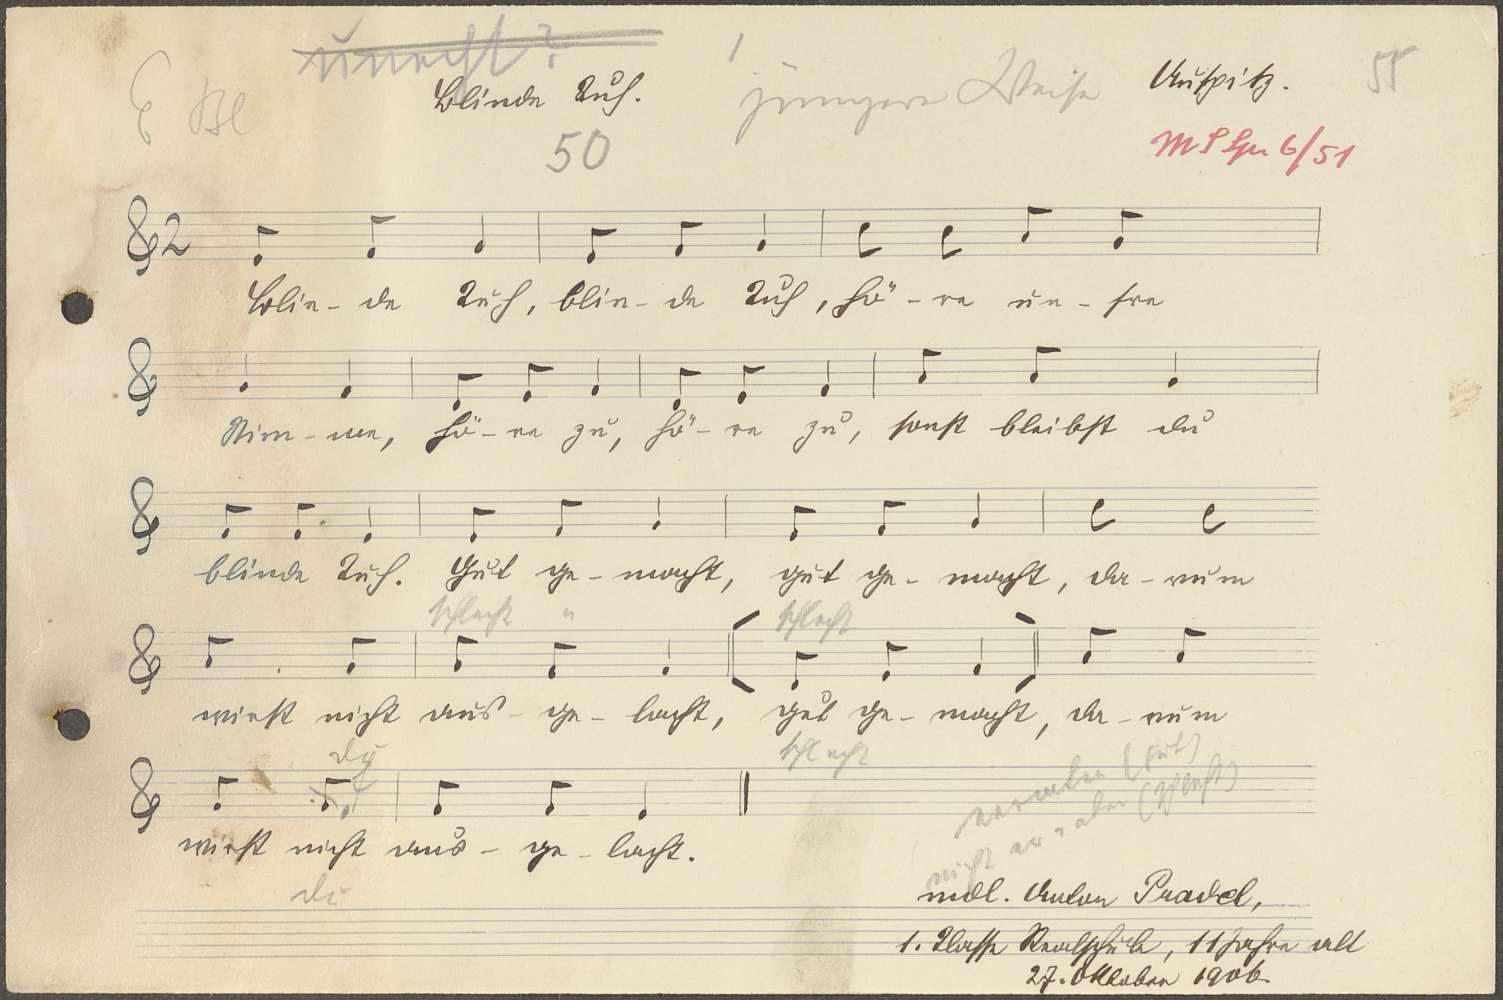 unecht?
Blinde Kuh.
jüngere Weise
Auspitz.
55
E Bl
50
M P Spr 6/51
2
Blin- de Kuh, blin- de Kuh, hö- re un- sre
Stim- me, hö- re zu, hö- re zu, sonst bleibst du
blinde Kuh. Gut ge- macht, gut ge- macht, da- rum
schlecht " schlecht
wirst nicht aus- ge- lacht, gut ge- macht, da- rum
du schlecht
wirst nicht aus- ge- lacht.
du
erraten (gut)
nicht erraten (schlecht)
mdl. Anton Pradel,
1. Klasse Realschule, 11 Jahre alt
27. Oktober 1906.